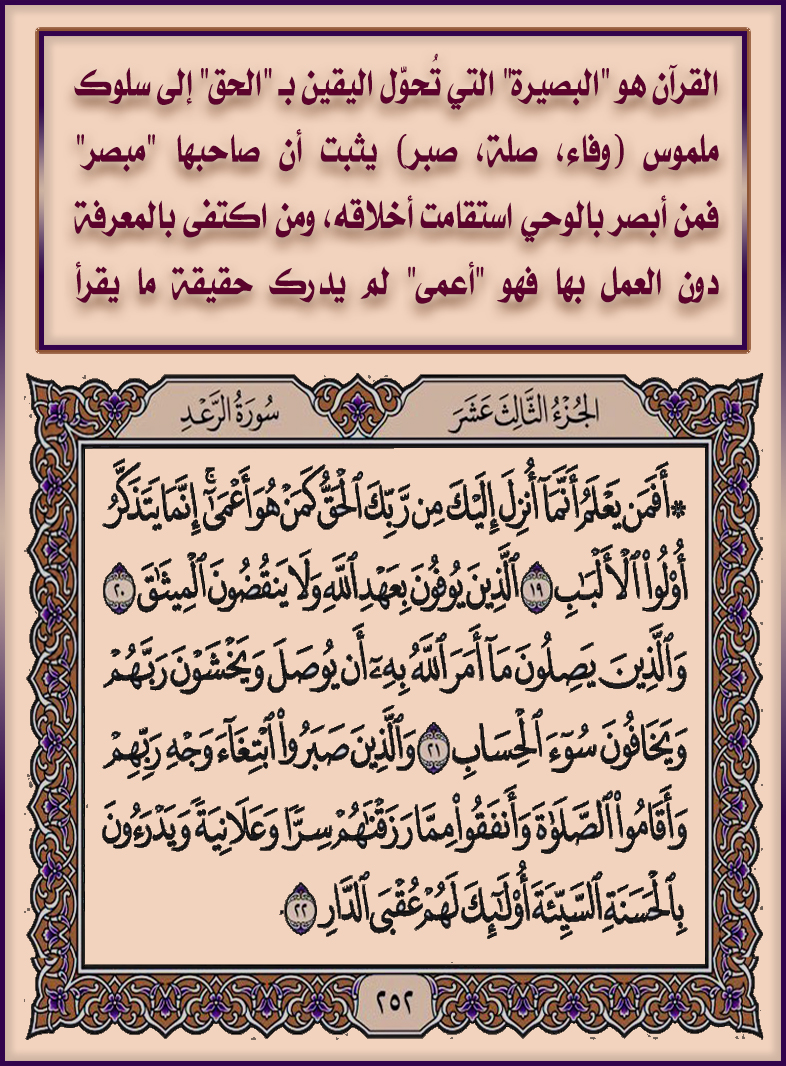 القرآن هو "البصيرة" التي تُحوّل اليقين بـ "الحق" إلى سلوك
ملموس (وفاء، صلة، صبر) يثبت أن صاحبها "مبصر"
فمن أبصر بالوحي استقامت أخلاقه، ومن اكتفى بالمعرفة
دون العمل بها فهو "أعمى" لم يدرك حقيقة ما يقرأ
الجُزْءُ الثَّالِثَ عَشَرَ
سُورَةُ الرَّعْدِ
۞ أَفَمَن يَعْلَمُ أَنَّمَآ أُنزِلَ إِلَيْكَ مِن رَّبِّكَ ٱلْحَقُّ كَمَنْ هُوَ أَعْمَىٰٓۚ إِنَّمَا يَتَذَكَّرُ
أُو۟لُوا۟ ٱلْأَلْبَٰبِ ١٩ ٱلَّذِينَ يُوفُونَ بِعَهْدِ ٱللَّهِ وَلَا يَنقُضُونَ ٱلْمِيثَٰقَ ٢٠
وَٱلَّذِينَ يَصِلُونَ مَآ أَمَرَ ٱللَّهُ بِهِۦٓ أَن يُوصَلَ وَيَخْشَوْنَ رَبَّهُمْ
وَيَخَافُونَ سُوٓءَ ٱلْحِسَابِ ٢١ وَٱلَّذِينَ صَبَرُوا۟ ٱبْتِغَآءَ وَجْهِ رَبِّهِمْ
وَأَقَامُوا۟ ٱلصَّلَوٰةَ وَأَنفَقُوا۟ مِمَّا رَزَقْنَٰهُمْ سِرًّا وَعَلَانِيَةً وَيَدْرَءُونَ
بِٱلْحَسَنَةِ ٱلسَّيِّئَةَ أُو۟لَٰٓئِكَ لَهُمْ عُقْبَى ٱلدَّارِ ٢٢
٢٥٢